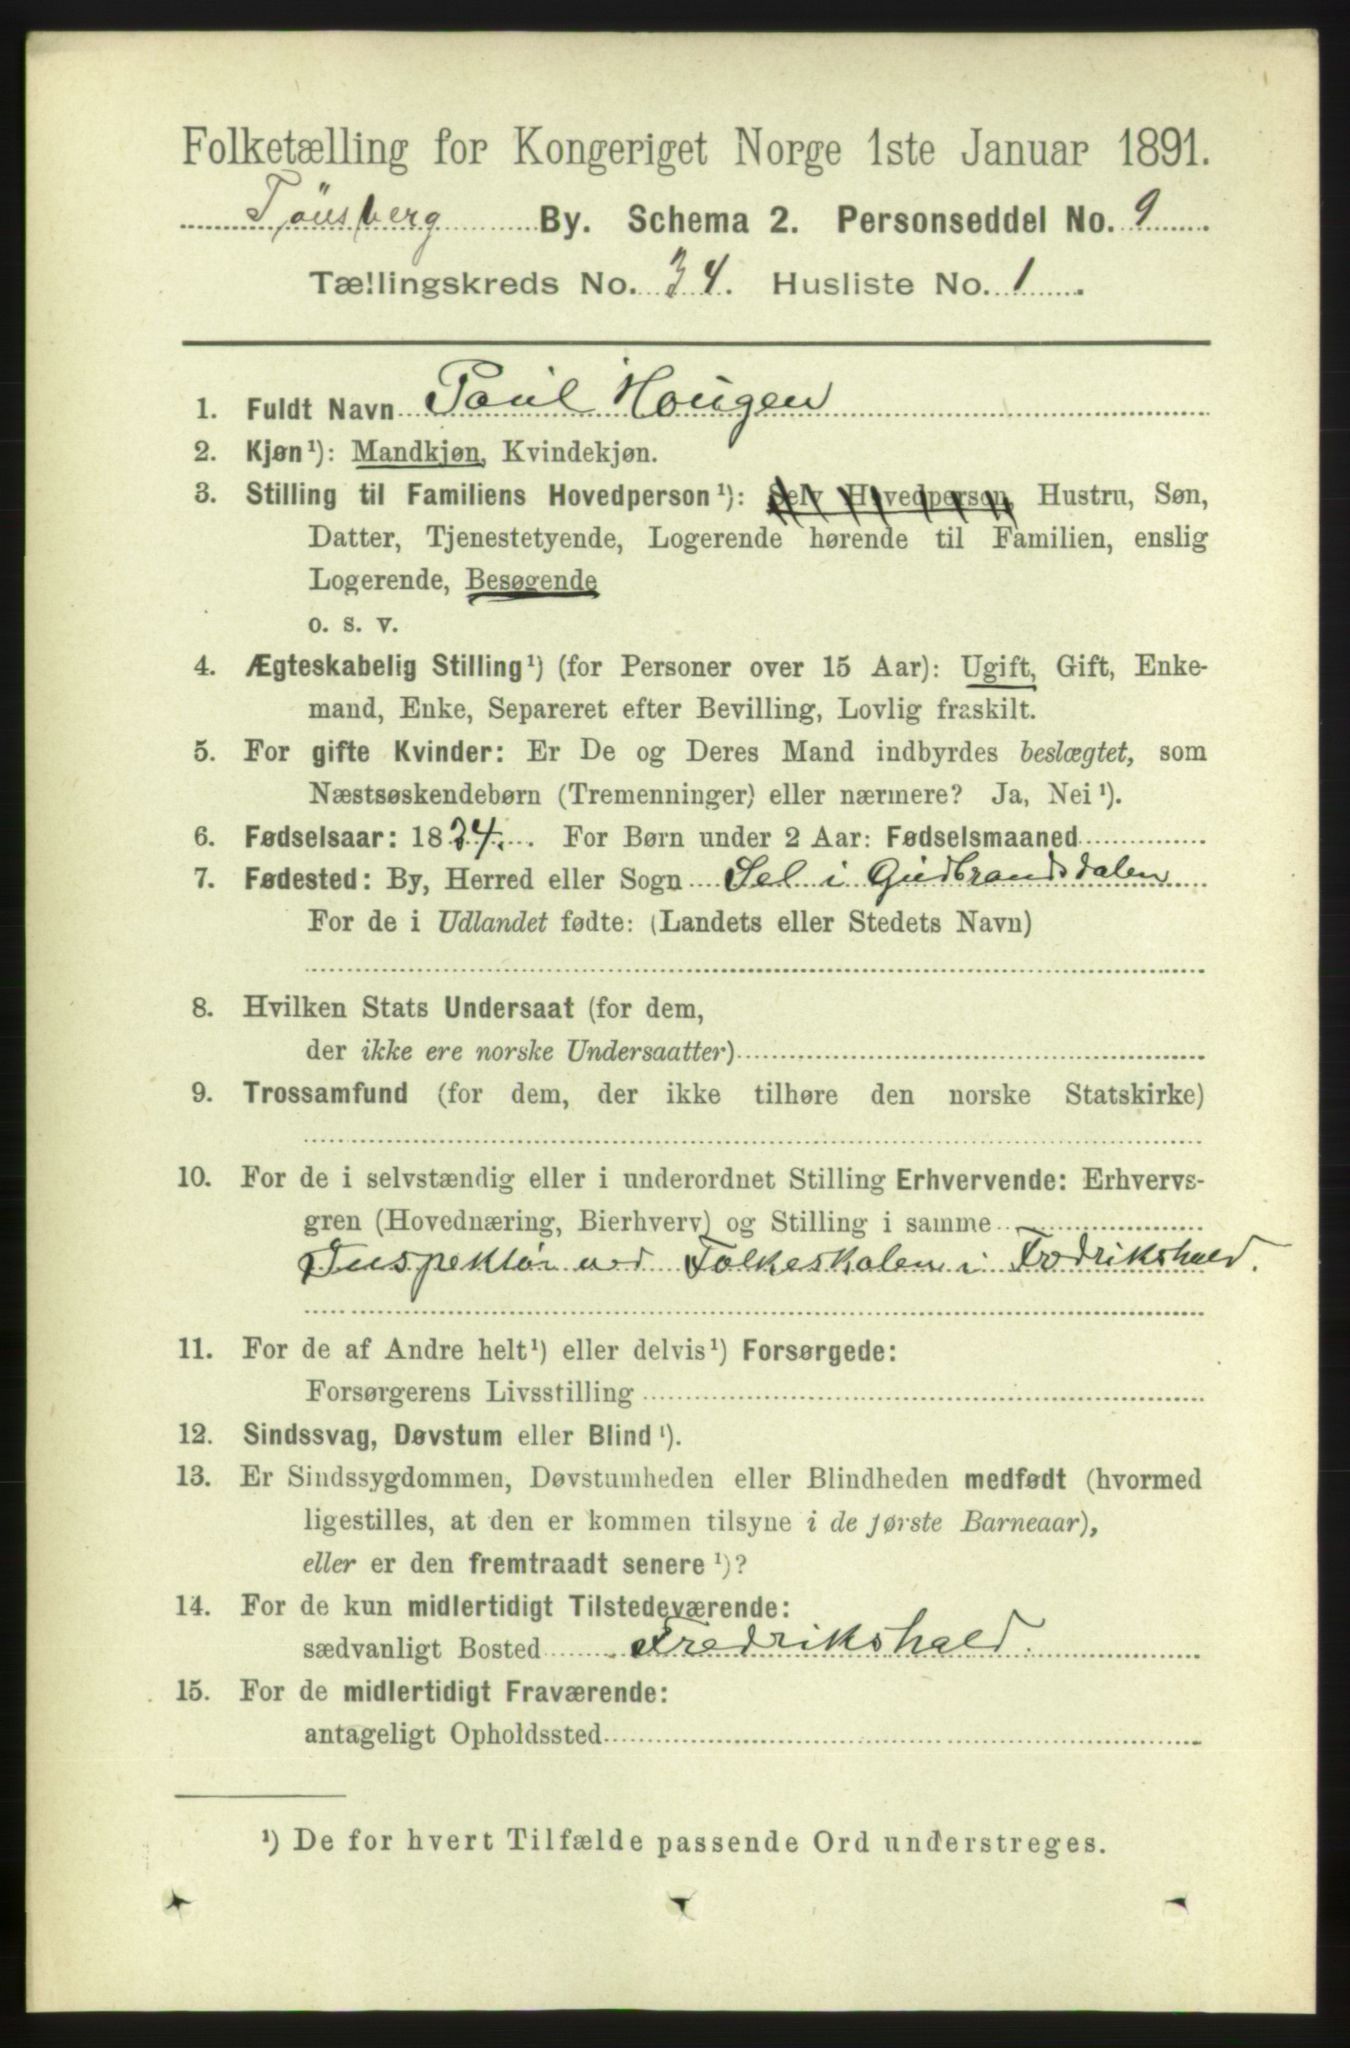 Folketælling for Kongeriget Norge 1ste Januar 1891.
Tönsberg By. Schema 2. Personseddel No. 9
Tællingskreds No. 34. Husliste No. 1.
1. Fuldt Navn Paul Hougen
2. Kjøn¹): Mandkjøn, Kvindekjøn.
3. Stilling til Familiens Hovedperson¹): Selv Hovedperson, Hustru, Søn,
Datter, Tjenestetyende, Logerende hørende til Familien, enslig
Logerende, Besøgende
o. s. v.
4. Ægteskabelig Stilling¹) (for Personer over 15 Aar): Ugift, Gift, Enke-
mand, Enke, Separeret efter Bevilling, Lovlig fraskilt.
5. For gifte Kvinder: Er De og Deres Mand indbyrdes beslægtet, som
Næstsøskendebørn (Tremenninger) eller nærmere? Ja, Nei¹).
6. Fødselsaar: 1834. For Børn under 2 Aar: Fødselsmaaned
7. Fødested: By, Herred eller Sogn Sel i Gudbrandsdalen
For de i Udlandet fødte: (Landets eller Stedets Navn)
8. Hvilken Stats Undersaat (for dem,
der ikke ere norske Undersaatter)
9. Trossamfund (for dem, der ikke tilhøre den norske Statskirke)
10. For de i selvstændig eller i underordnet Stilling Erhvervende: Erhvervs-
gren (Hovednæring, Bierhverv) og Stilling i samme
Inspektör ved Folkeskolen i Fredrikshald.
11. For de af Andre helt¹) eller delvis¹) Forsørgede:
Forsørgerens Livsstilling
12. Sindssvag, Døvstum eller Blind¹).
13. Er Sindssygdommen, Døvstumheden eller Blindheden medfødt (hvormed
ligestilles, at den er kommen tilsyne i de første Barneaar),
eller er den fremtraadt senere¹)?
14. For de kun midlertidigt Tilstedeværende:
sædvanligt Bosted Fredrikshald.
15. For de midlertidigt Fraværende:
antageligt Opholdssted
¹) De for hvert Tilfælde passende Ord understreges.